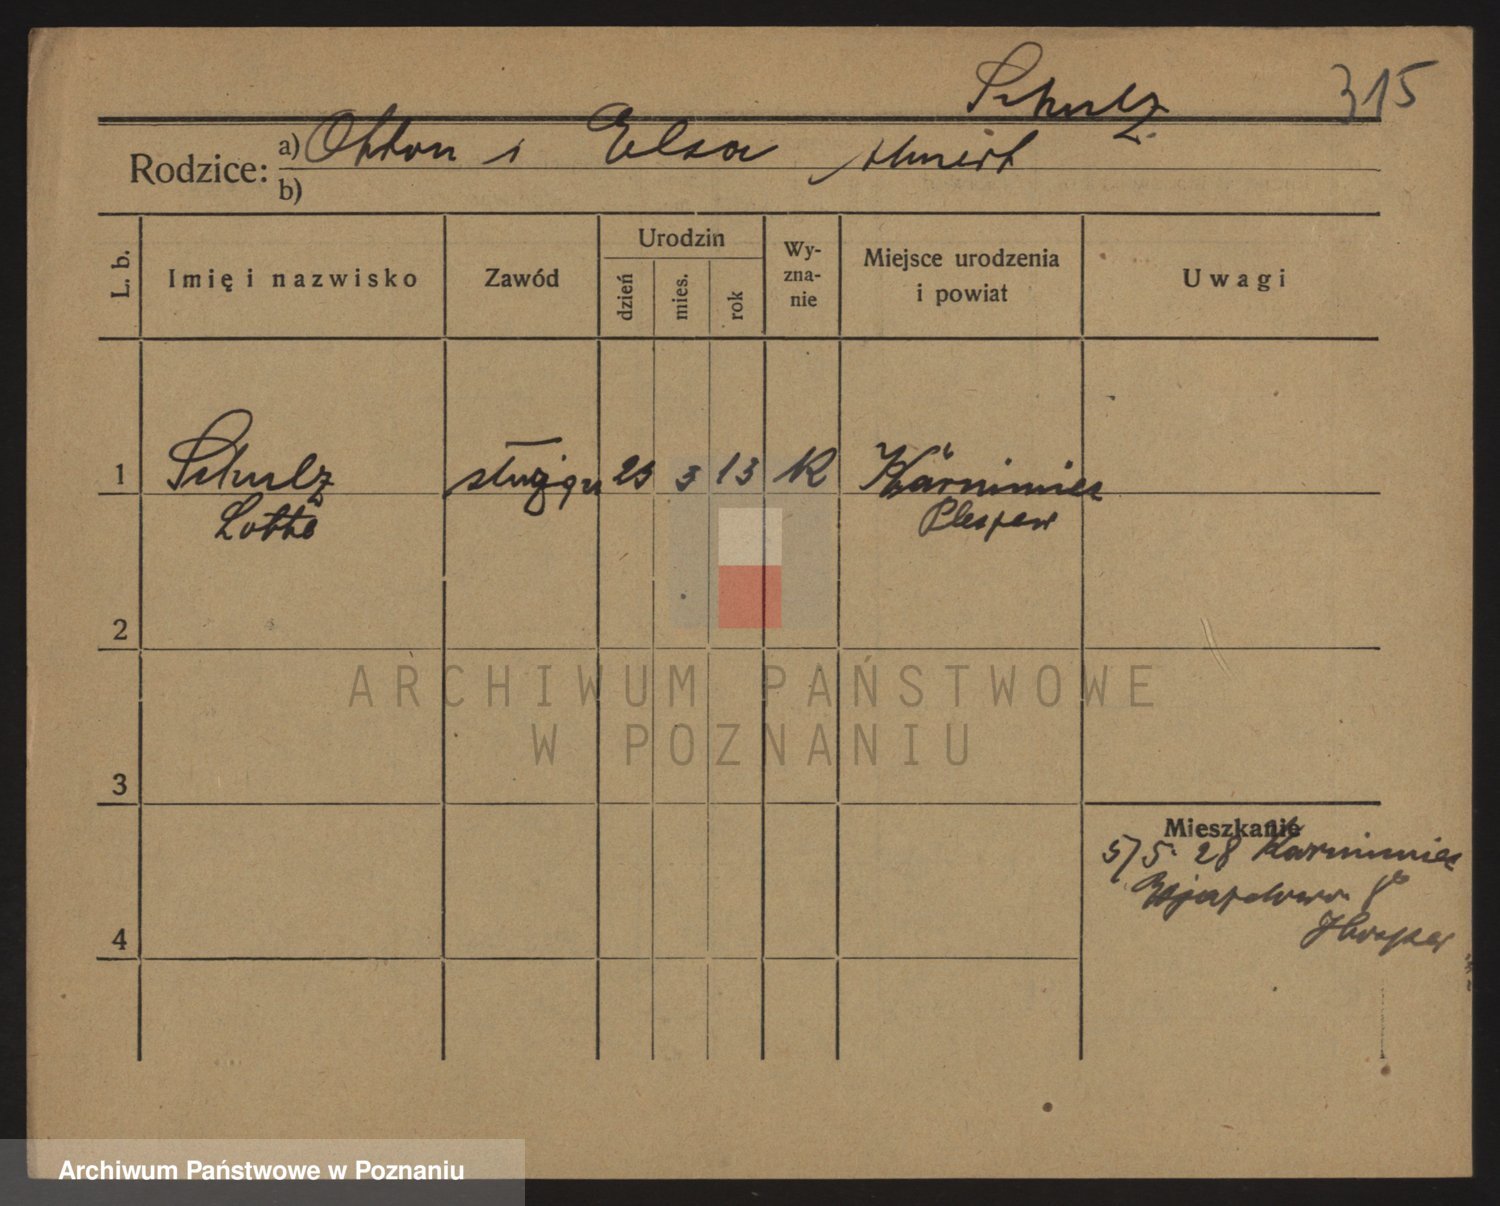 Schulz 315
Rodzice: a) Otton i Elsa
b)
L. b. Imię i nazwisko Zawód Urodzin dzień mies. rok Wy-zna-nie Miejsce urodzenia i powiat Uwagi
1 Schulz służąca 23 3 13 Karminiec
Lotte Pleszew
2
ARCHIWUM PAŃSTWOWE
W POZNANIU
3
Mieszkanie
5/5 28 Karminiec
4
Archiwum Państwowe w Poznaniu